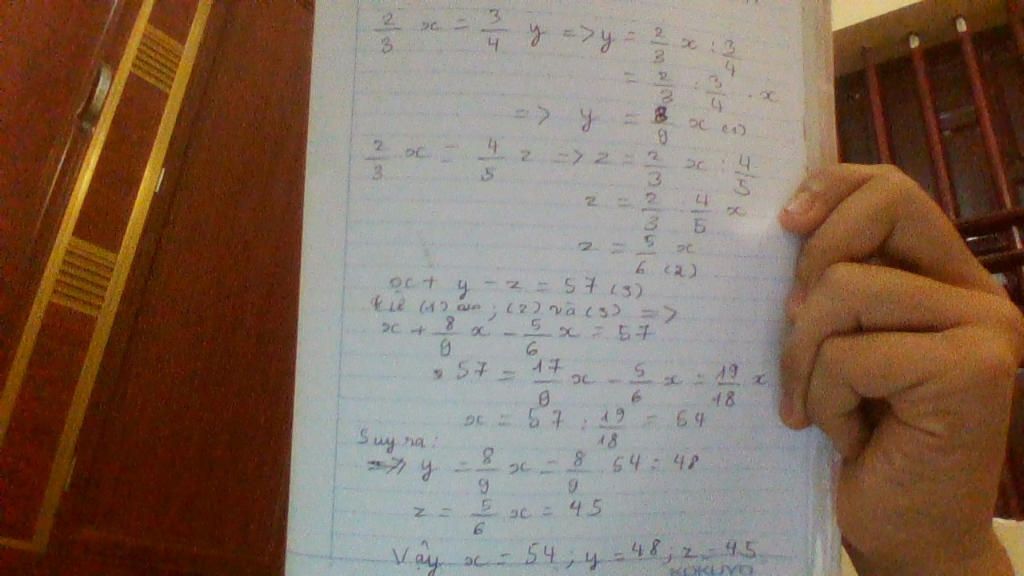 2/3 x = 3/4 y => y = 2/3 x : 3/4
= 2/3 : 3/4 . x
=> y = 8/9 x (1)
2/3 x = 4/5 z => z = 2/3 x : 4/5
z = 2/3 : 4/5 x
z = 5/6 x (2)
x + y - z = 57 (3)
Từ (1) ; (2) và (3) =>
x + 8/9 x - 5/6 x = 57
57 = 17/9 x - 5/6 x = 19/18 x
x = 57 : 19/18 = 54
Suy ra:
=> y = 8/9 x = 8/9 . 54 = 48
z = 5/6 x = 45
Vậy x = 54 ; y = 48 ; z = 45
KOKUYO